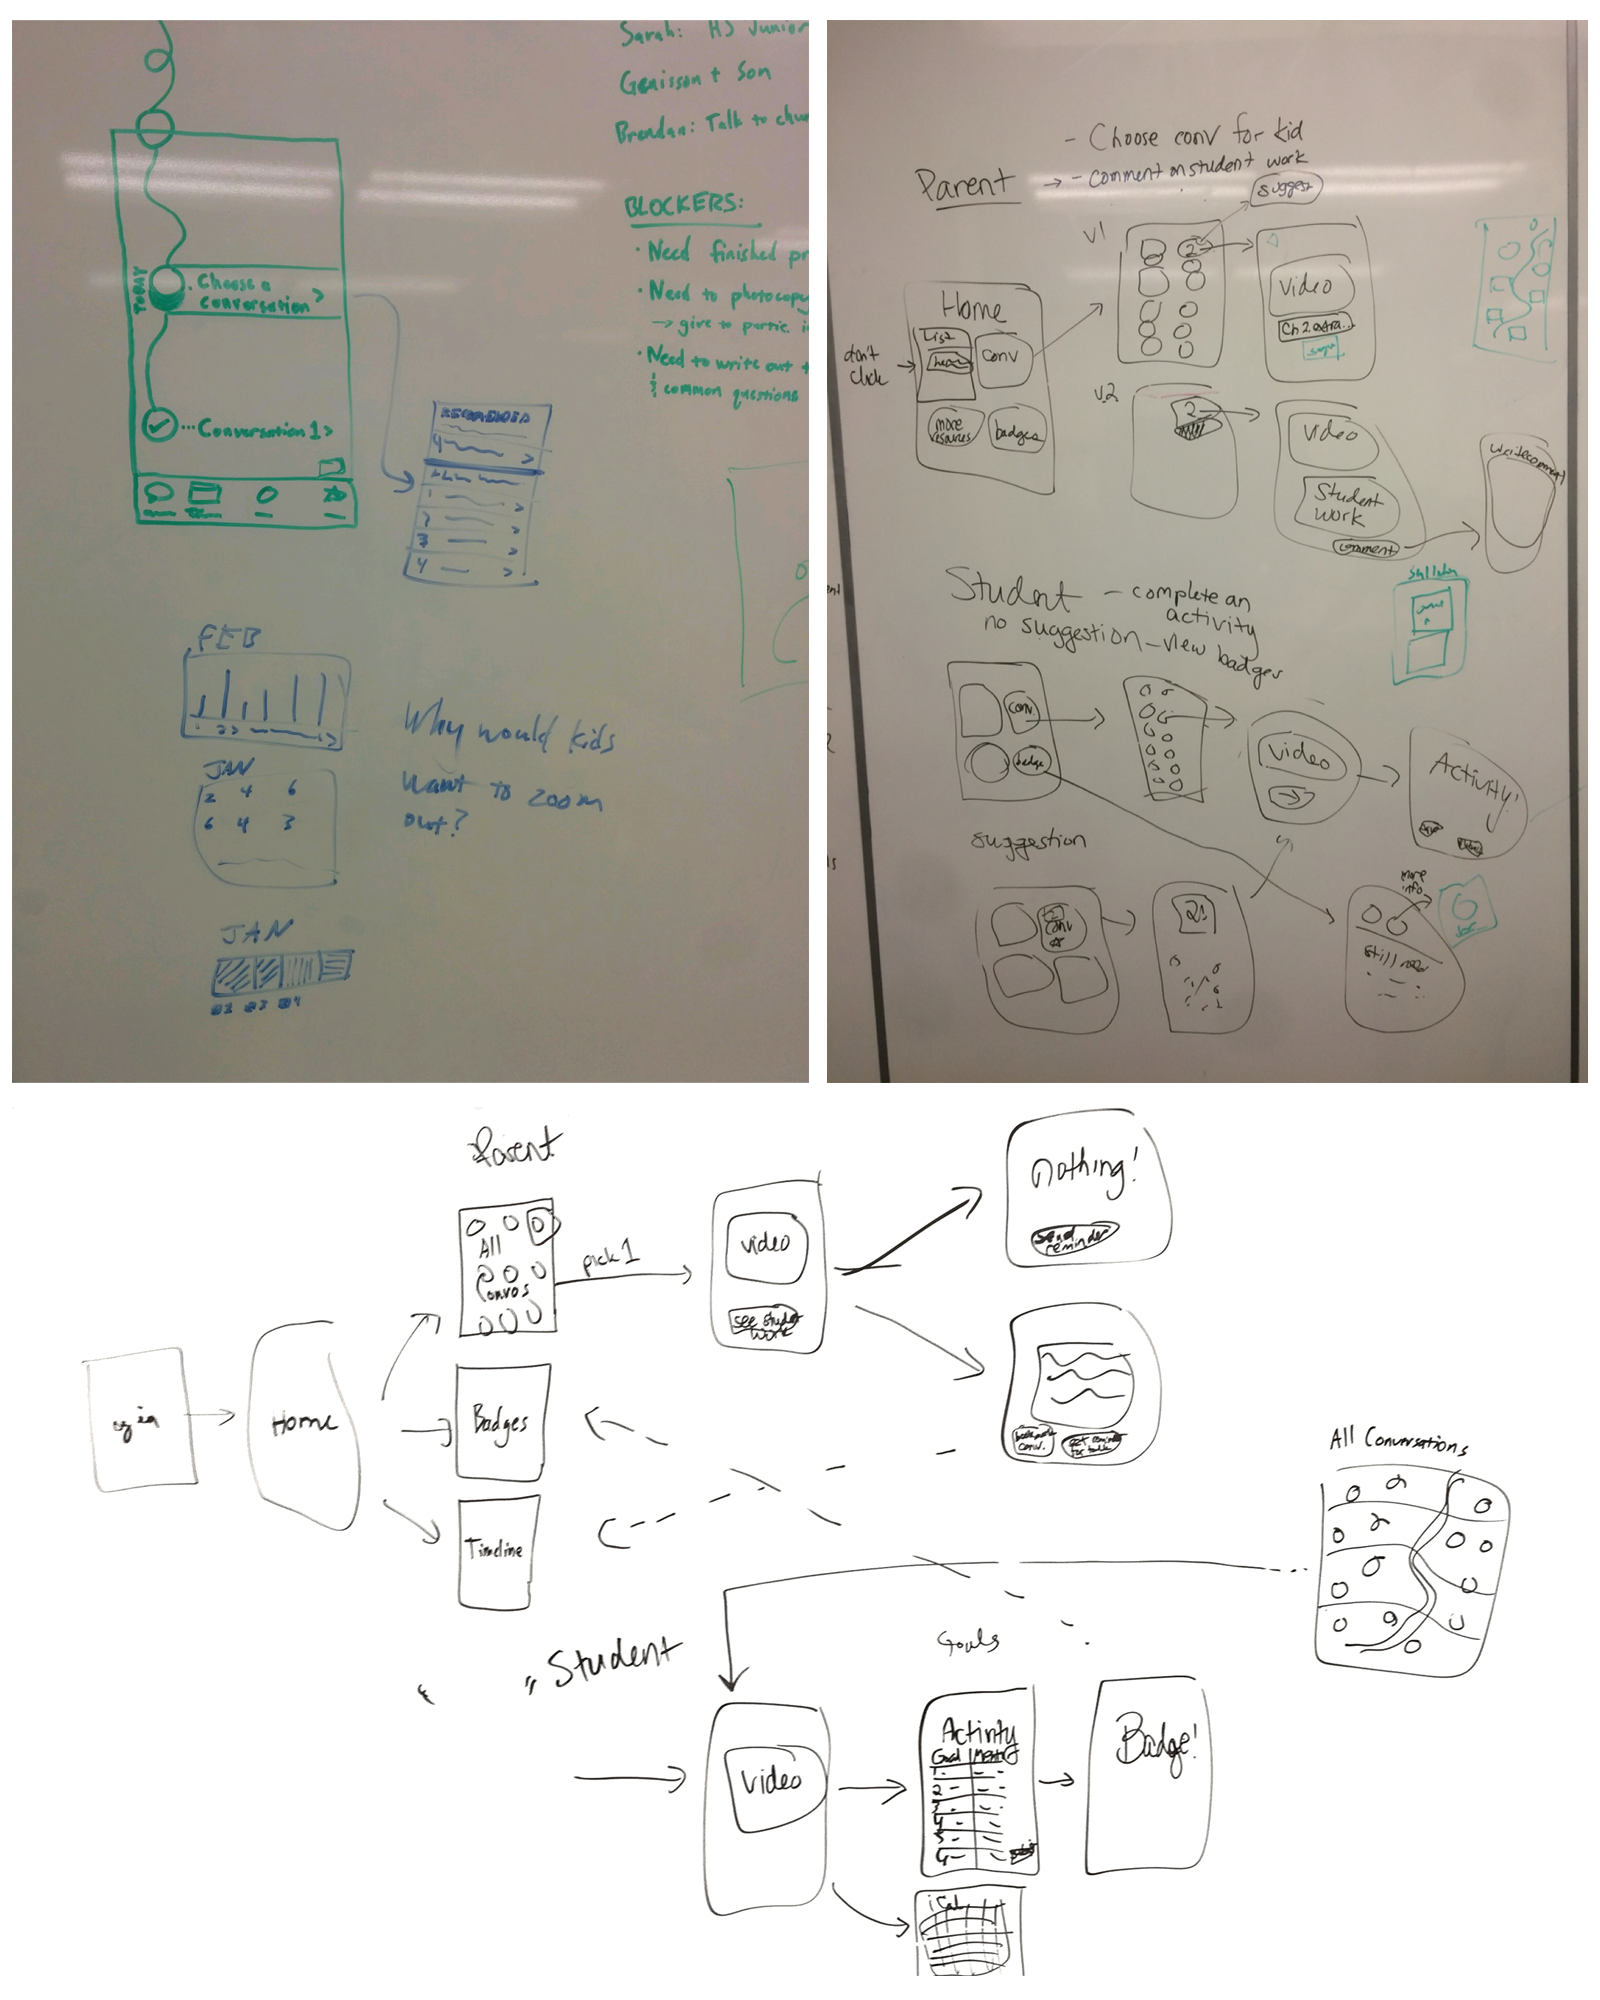 Sarah: HS Junior
Genisson + Son
Brendan: Talk to
BLOCKERS:
· Need finished
· Need to photocopy
→ give to partic
· Need to write out
& common questions
TODAY
Choose a
conversation >
...Conversation 1 >
RECOMMENDED
4
1
2
3
4
FEB
JAN
2 4 6
6 4 3
JAN
#2 #3 #4
Why would kids
want to zoom
out?
- Choose conv for kid
Parent → - comment on student work
suggest
v1
2
video
Ch 2 extra...
Home
List
conv
don't
click
more
resources
badges
v.2
2
video
Student
work
comment
write comment
Student - complete an
activity
no suggestion - view badges
conv.
badge
video
→
Activity!
suggestion
conv
2
more
info
still need
Parent
All
Convos
pick 1
video
see student
work
nothing!
send
reminder
Home
Badges
Timeline
bookmark
conv.
set reminder
for talk
All Conversations
Student
Goals
video
Activity
Goal
1
2
3
4
5
Badge!
iCal